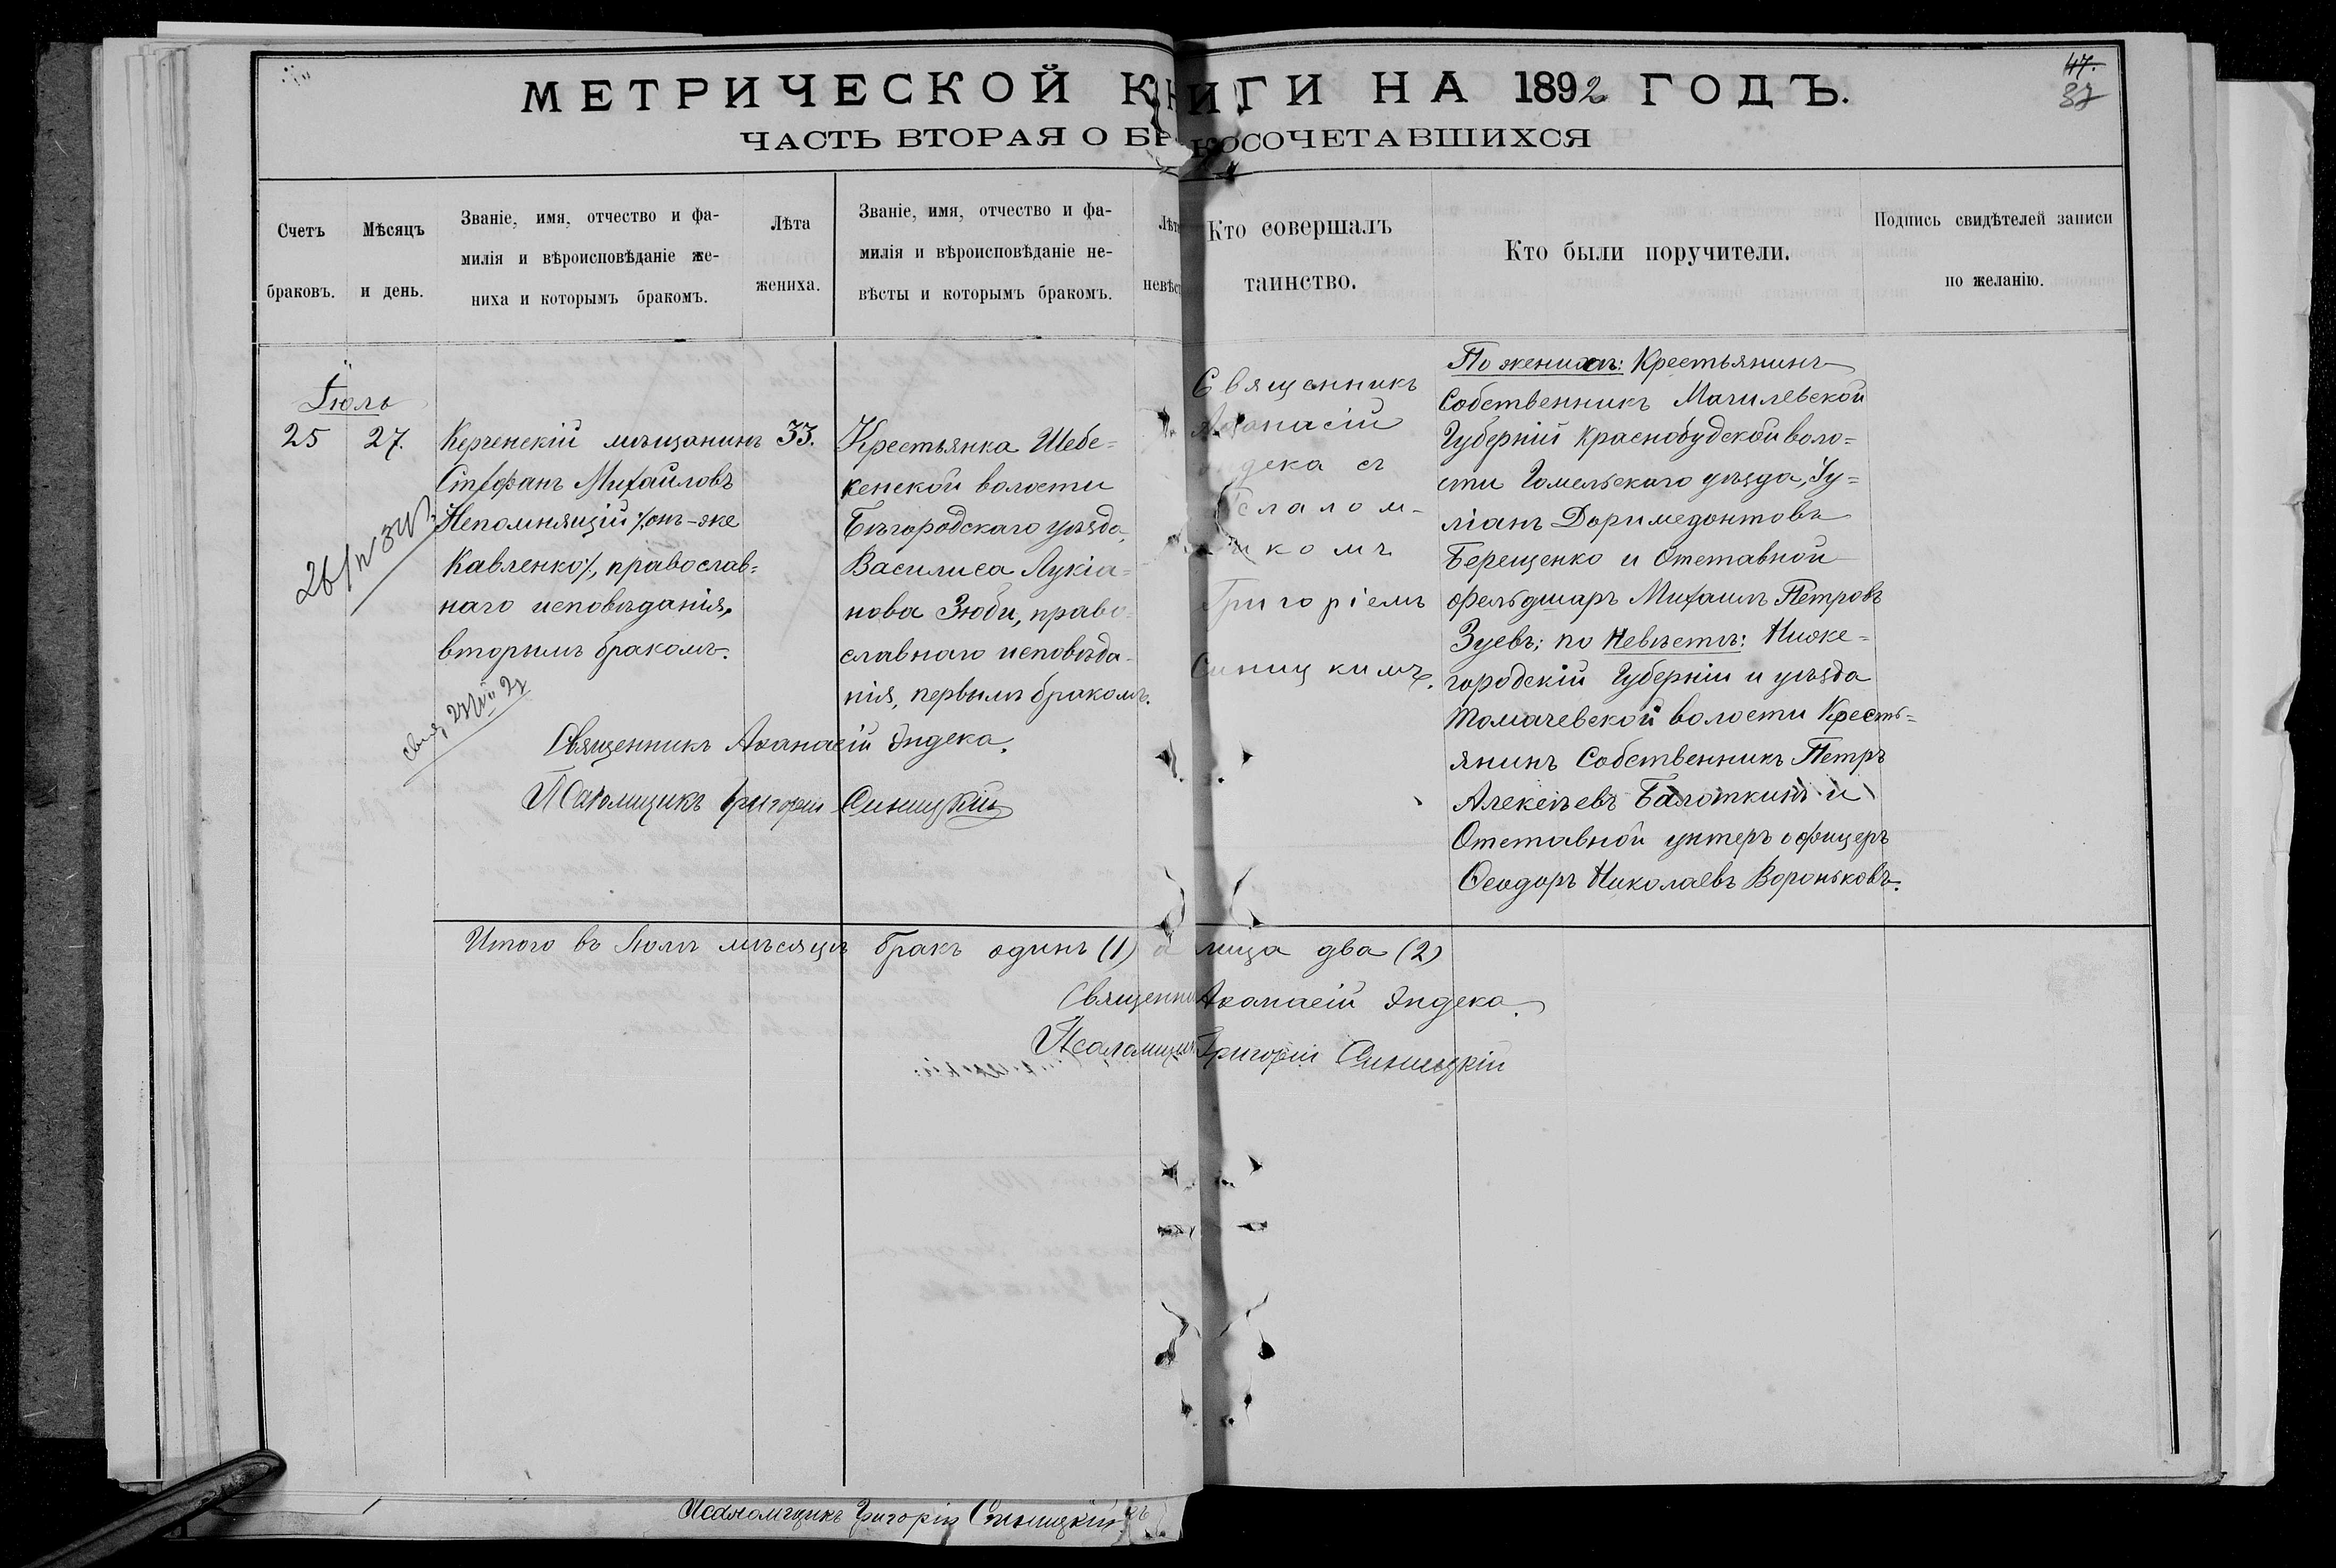 МЕТРИЧЕСКОЙ КНИГИ НА 1892 ГОДЪ.
47.
37
ЧАСТЬ ВТОРАЯ О БРАКОСОЧЕТАВШИХСЯ
Счетъ браковъ.
Мѣсяцъ и день.
Званіе, имя, отчество и фа-
милія и вѣроисповѣданіе же-
ниха и которымъ бракомъ.
Лѣта
жениха.
Званіе, имя, отчество и фа-
милія и вѣроисповѣданіе не-
вѣсты и которымъ бракомъ.
Лѣта
невѣсты
Кто совершалъ
таинство.
Кто были поручители.
Подпись свидѣтелей записи
по желанію.
Іюль
25
27.
Керченскій мѣщанинъ
Стефанъ Михайловъ
Непомнящій /онъ-же
Кавленко/, православ=
наго исповѣданія,
вторымъ бракомъ.
33.
Крестьянка Шебе=
кенской волости
Бѣлгородскаго уѣзда,
Василиса Лукіа=
нова Зюби, право=
славнаго исповѣда-
нія, первымъ бракомъ.
Священникъ
Аѳанасій
Эндека съ
Псалом-
щикомъ
Григоріемъ
Синицкимъ.
По женихѣ: Крестьянинъ
Собственникъ Магилевской
Губерніи Краснобудской воло=
сти Гомельскаго уѣзда, Іу=
ліанъ Доримедонтовъ
Берещенко и Отставной
фельдшаръ Михаилъ Петровъ
Зуевъ; по Невѣстѣ: Ниже=
городскій Губерніи и уѣзда
Томачевской волости Кресть=
янинъ Собственникъ Петръ
Алексѣевъ Балоткинъ и
Отставной унтеръ офицеръ
Ѳеодоръ Николаевъ Вороньковъ.
Священникъ Аѳанасій Эндека.
Псаломщикъ Григорій Синицкій
Итого въ Іюлѣ мѣсяцѣ бракъ одинъ (1) а лица два (2)
Священникъ Аѳанасій Эндека.
Псаломщикъ Григорій Синицкій
Псаломщикъ Григорій Синицкій